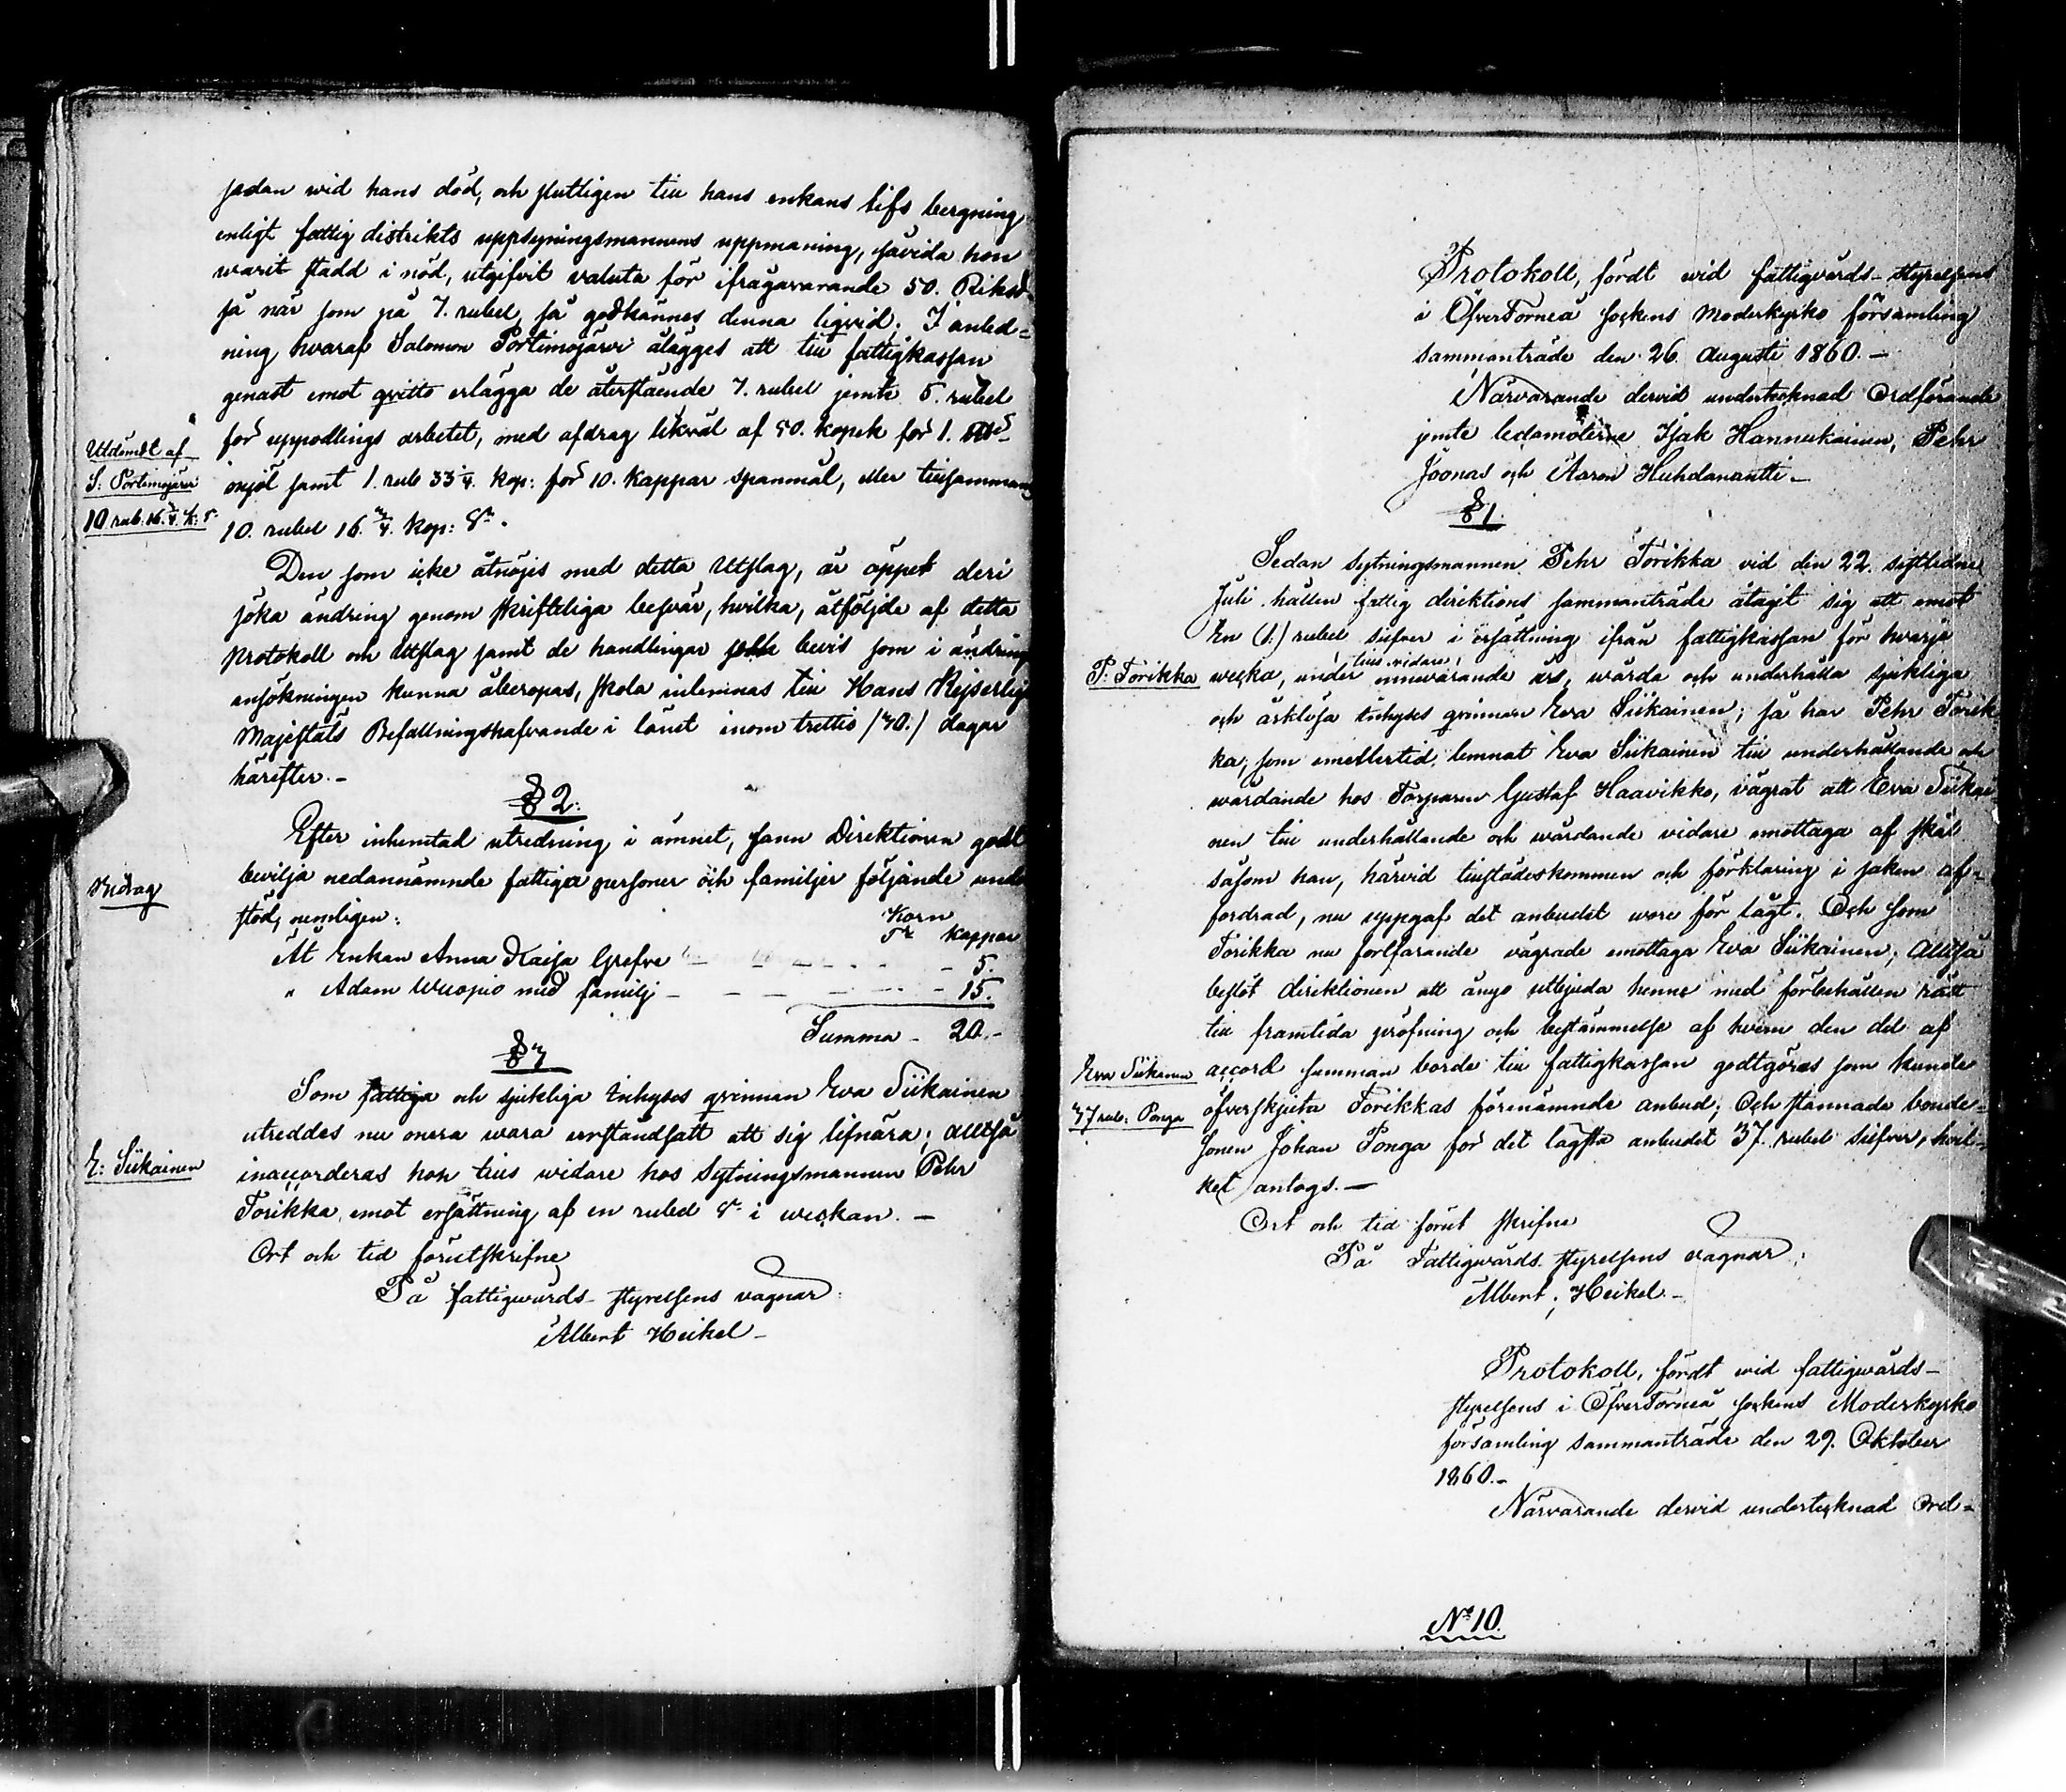 sedan wid hans död, och slutligen till hans enkans lifs bergning
enligt fattig distrikts uppsyningsmannens uppmaning, såvida hon
warit stadd i nöd, utgifvit valuta för ifrågavarande 50. Riksd
så när som på 7. rubel, så godkännes denna liqvid. I anled-
ning hvaraf Salomon Portimojärvi ålägges att till fattigkassan
genast emot qvitto erlägga de återstående 7. rubel jemte 5. rubel
för uppodlings arbetet, med afdrag likväl af 50. kopek för 1.
mjöl samt 1. rub 33 1/4. kop: för 10. kappar spanmål, eller tillsammans
10. rubel 16. 3/4. kop: Sr.
Utdömdt af
S: Portimojärvi
10 rub: 16. 3/4. k: S.
Den som icke åtnöjes med detta Utslag, är öppet deri
söka ändring genom skrifteliga besvär, hvilka, åtföljde af detta
protokoll och Utslag samt de handlingar bevis som i ändrings
ansökningen kunna åberopas, skola inlemnas till Hans Kejserliga
Majestäts Befallningshafvande i länet inom trettio (30.) dagar
härefter. -
§ 2:
Efter inhemtad utredning i ämnet, fann Direktionen godt
bevilja nedannämnde fattiga personer och familjer följande under
stöd, nemligen:
Undrag
Korn
Tr kappar
Åt Enkan Anna Kaisa Grefve - 5.
" Adam Wuopio med familj - 15.
Summa - 20. -
§ 3
Som fattiga och sjukliga Inhyses qvinnan Eva Siikainen
utreddes nu mera wara urståndsatt att sig lifnära; Alltså
inaccorderas hon tills widare hos Sytningsmannen Pehr
Torikka, emot ersättning af en rubel Sr. i weckan. -
E: Siikainen
Ort och tid förutskrifne
På fattigwårds-styrelsens vägnar:
Albert Heikel -
Protokoll, fördt wid fattigvårds-styrelsens
i ÖfverTorneå sockens Moderkyrko församling
sammanträde den 26. Augusti 1860. -
Närvarande dervid undertecknad Ordförande
jemte ledamöterne Isak Hannukainen, Pehr
Joonas och Aaron Huhdanantti. -
§ 1.
Sedan Sytningsmannen Pehr Torikka vid den 22. sistledne
Juli hållen fattig direktions sammanträde åtagit sig att emot
En (1:) rubel silfver i ersättning ifrån fattigkassan för hvarje
wecka, under tills vidare innevarande års, wårda och underhålla sjukliga
P: Torikka
och årklösa Inhyses qvinnan Eva Siikainen; så har Pehr Torik
ka, som emellertid lemnat Eva Siikainen till underhållande och
wårdande hos Torparen Gustaf Haavikko, vägrat att Eva Siikai
nen till underhållande och wårdande vidare emottaga af skäl
såsom han, härvid tillstädeskommen och förklaring i saken af-
fordrad, nu uppgaf det anbudet wore för lågt. Och som
Torikka nu fortfarande vägrade emottaga Eva Siikainen; Alltså
beslöt direktionen att ånyo utbjuda henne med förbehållen rätt
till framtida pröfning och bestämmelse af hvem den del af
accord summan borde till fattigkassan godtgöras som kunde
öfverskjuta Torikkas förenämnde anbud; Och stannade bonde-
sonen Johan Ponga för det lägsta anbudet 37. rubel silfver, hvil-
ket antogs. -
Eva Siikainen
37 rub. Ponga
Ort och tid förut skrifne
På Fattigwårds styrelsens vägnar:
Albert Heikel. -
Protokoll, fördt wid fattigwårds-
styrelsens i ÖfverTorneå sockens Moderkyrko
församling sammanträde den 29. Oktober
1860. -
Närvarande dervid undertecknad Ord-
No 10.